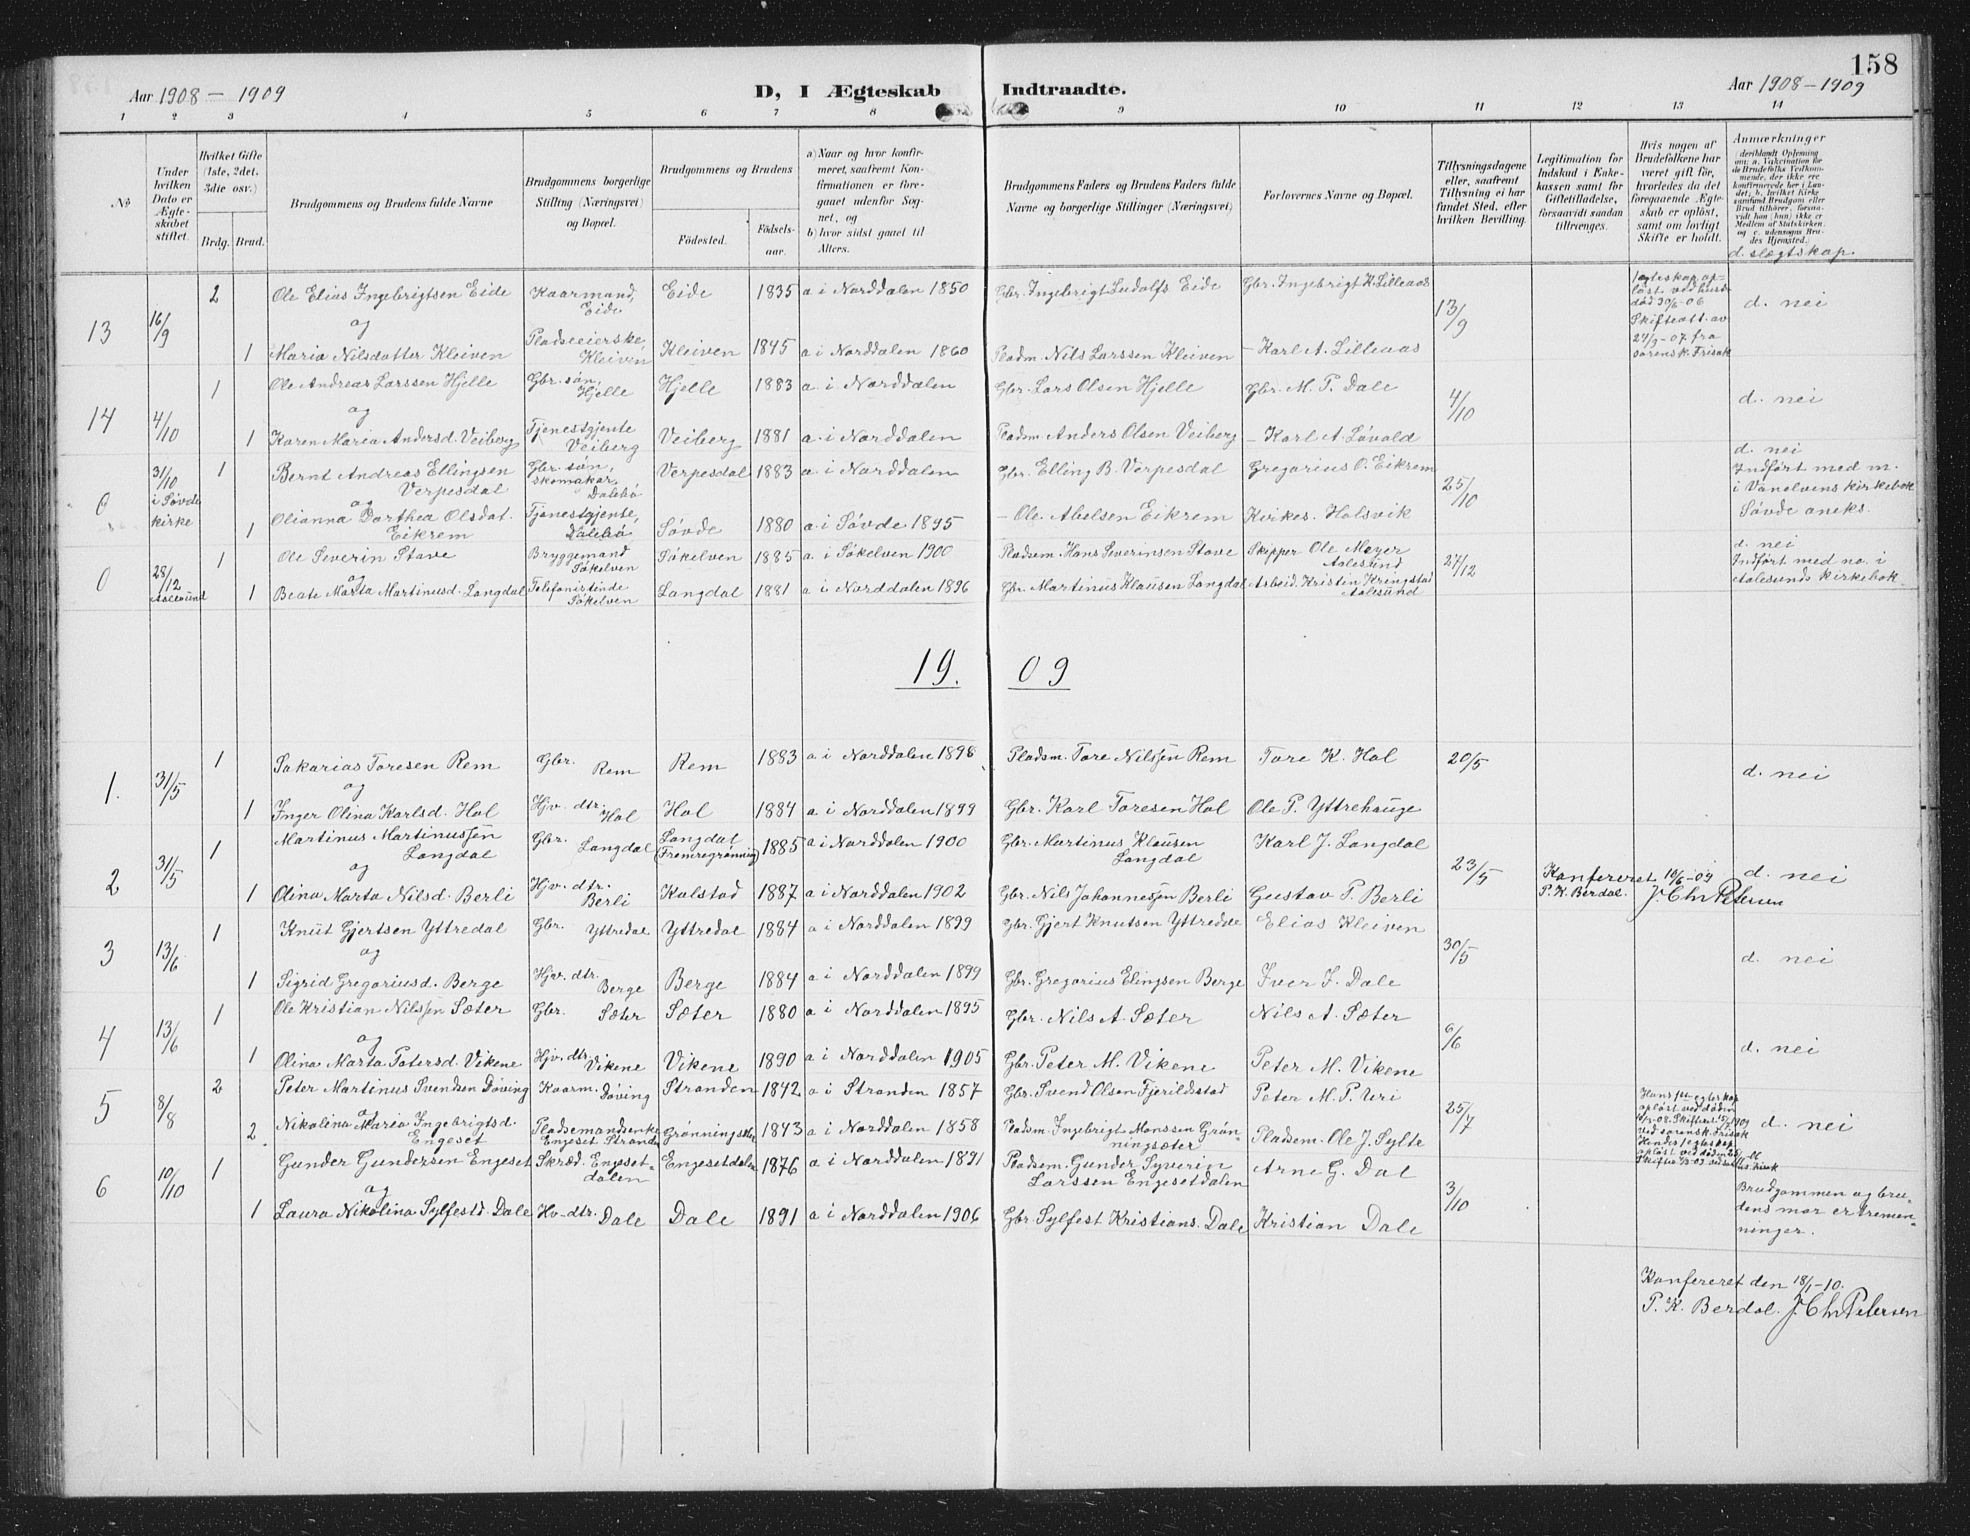 158
Aar 1908 – 1909
D, I Ægteskab Indtraadte.
Aar 1908 – 1909
1 2 3 4 5 6 7 8 9 10 11 12 13 14
No
Under hvilken Dato er Ægteskabet stiftet.
Hvilket Gifte (1ste, 2det, 3die osv.)
Brdg. Brud.
Brudgommens og Brudens fulde Navne
Brudgommens borgerlige Stilling (Næringsvei) og Bopæl.
Brudgommens og Brudens
Fødested.
Fødselsaar.
a) Naar og hvor konfirmeret, saafremt Konfirmationen er foregaaet udenfor Sognet, og
b) hvor sidst gaaet til Alters.
Brudgommens Faders og Brudens Faders fulde Navne og borgerlige Stillinger (Næringsvei)
Forlovernes Navne og Bopæl.
Tillysningsdagene eller, saafremt Tillysning ei har fundet Sted, efter hvilken Bevilling.
Legitimation for Indskud i Enkekassen samt for Giftetilladelse, forsaavidt saadan tiltrænges.
Hvis nogen af Brudefolkene har været gift før, hvorledes da det foregaaende Ægteskab er opløst, samt om lovligt Skifte er holdt.
Anmærkninger
d. slegtskap.
13 16/9 2 Ole Elias Ingebrigtsen Eide Kaarmand, Eide Eide 1835 a i Norddalen 1850 Gbr. Ingebrigt Ludolfs. Eide Gbr. Ingebrigt K. Lilleaas 13/9 Egteskap opløst ved hustr. død 30/6-06 Skifteatt. av 24/9-07 fra sorensk. Frisak d. nei
og
1 Maria Nilsdatter Kleiven Pladseeierske, Kleiven Kleiven 1845 a i Norddalen 1860 Pladsm. Nils Larssen Kleiven – Karl A. Lilleaas
14 4/10 1 Ole Andreas Larssen Hjelle Gbr. søn, Hjelle Hjelle 1883 a. i Norddalen Gbr. Lars Olsen Hjelle Gbr. M. P. Dale 4/10 d. nei
og
1 Karen Maria Andersd. Veiberg Tjenestgjente Veiberg Veiberg 1881 a. i Norddalen Pladsm. Anders Olsen Veiberg – Karl A. Løvold
0 31/10 i Søvde kirke 1 Bernt Andreas Ellingsen Verpesdal Gbr. søn, skomakar, Dalebø Verpesdal 1883 a. i Norddalen Gbr. Elling B. Verpesdal Gregorius O. Eikrem 25/10 d. nei Indført med nr. i Vanelvens kirkebok Søvde aneks.
og
1 Olianna Dorthea Olsdat. Eikrem Tjenestgjente, Dalebø Søvde 1880 a. i Søvde 1895 – Ole Abelsen Eikrem Kirkes. Halsvik
0 28/12 Aalesund 1 Ole Severin Stave Bryggemand Søkelven Søkelven 1885 a. i Søkelven 1900 Pladsm. Hans Severinsen Stave Skipper Ole Meyer Aalesund 27/12 d. nei Indført med no. i Aalesunds kirkebok.
og
1 Beate Marta Martinusd. Langdal Telefonistinde Søkelven Langdal 1881 a i Norddalen 1896 Gbr. Martinus Klausen Langdal Arbeid. Kristen Krengstad Aalesund
19. 09
1. 31/5 1 Sakarias Toresen Rem Gbr. Rem Rem 1883 a i Norddalen 1898 Pladsm. Tore Nilssen Rem Tore K. Hol 20/5 d. nei
og
1 Inger Olina Karlsd. Hol Hjv. dtr. Hol Hol 1884 a i Norddalen 1899 Gbr. Karl Toresen Hol Ole P. Yttrehauge
2 31/5 1 Martinus Martinussen Langdal Gbr. Langdal Langdal (Fremregrønning) 1885 a i Norddalen 1900 Gbr. Martinus Klausen Langdal Karl J. Langdal 23/5 d. nei
og
1 Olina Marta Nilsd. Berli Hjv. dtr. Berli Kalstad 1887 a i Norddalen 1902 Gbr. Nils Johannessen Berli Gustav P. Berli Konfereret 10/6-09 P. K. Berdal. J. Chr Petersen
3 13/6 1 Knut Gjertsen Yttredal Gbr. Yttredal Yttredal 1884 a i Norddalen 1899 Gbr. Gjert Knutsen Yttredal Elias Kleiven 30/5 d. nei
og
1 Sigrid Gregoriusd. Berge Hjv. dtr. Berge Berge 1884 a i Norddalen 1899 Gbr. Gregorius Elingsen Berge Iver I. Dale
4 13/6 1 Ole Kristian Nilssen Sæter Gbr. Sæter Sæter 1880 a i Norddalen 1895 Gbr. Nils A. Sæter Nils A. Sæter 6/6 d. nei
og
1 Olina Marta Petersd. Vikene Hjv. dtr. Vikene Vikene 1890 a i Norddalen 1905 Gbr. Peter M. Vikene Peter M. Vikene
5 8/8 2 Peter Martinus Svendsen Døving Kaarm. Døving Stranden 1842 a i Stranden 1857 Gbr. Svend Olsen Fjerildstad Peter M. P. Uri 25/7 d. nei
og
2 Nikolina Maria Ingebrigtsd. Engeset Pladsemandsenke Engeset Stranda Grønningsæter 1843 a i Norddalen 1858 Pladsm. Ingebrigt Monssen Grønningsæter Pladsem. Ole J. Sylte
6 10/10 1 Gunder Gundersen Engeset Skræd. Engesetdalen Engesetdalen 1876 a i Norddalen 1891 Pladsem. Gunder Syverin Larssen Engesetdalen Arne G. Dal 3/10 Brudgommen og brudens mor er tremenninger.
og
1 Laura Nikolina Sylfestd. Dale Hv-dtr. Dale Dale 1891 a i Norddalen 1906 Gbr. Sylfest Kristians. Dale Kristian Dale
Konfereret den 18/1-10.
P. K. Berdal. J. Chr Petersen